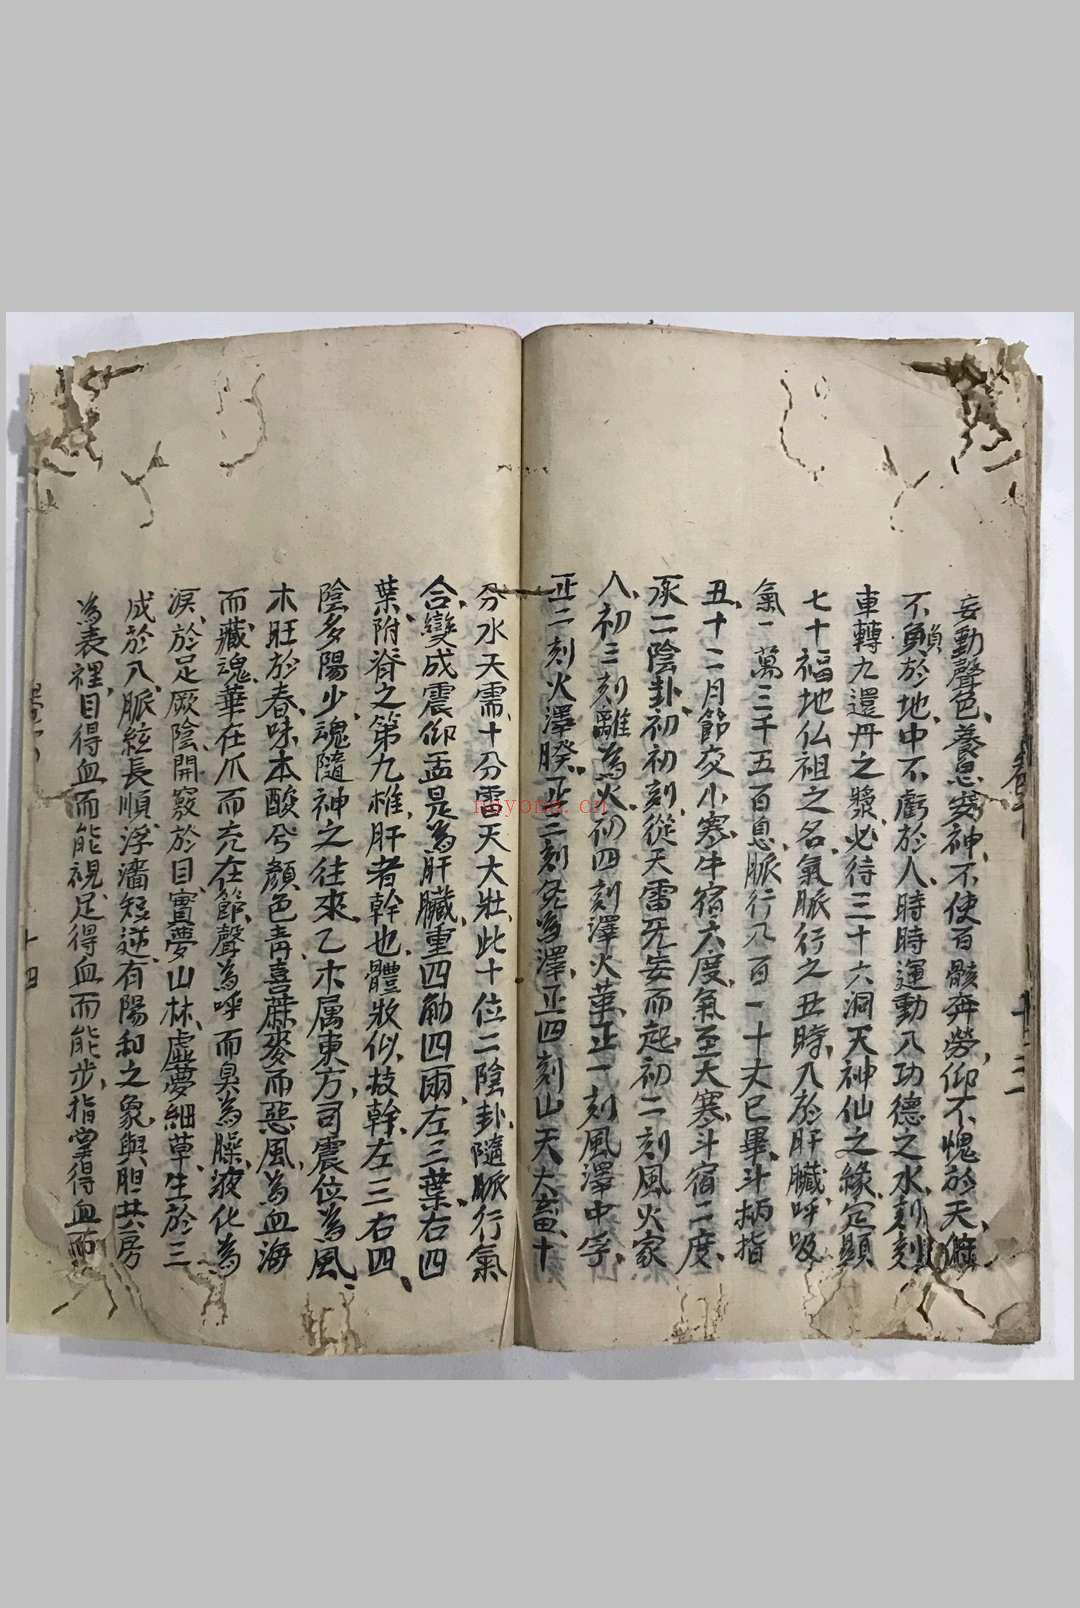 妄動聲色、養息安神、不使百骸奔勞、仰不愧於天、俯
不負於地、中不虧於人、時時運動八功德之水、刻刻
車轉九還丹之漿、必待三十六洞天神仙之緣、定顯
七十福地仏祖之名、氣脈行之丑時、入於肝臟、呼吸
氣一萬三千五百息、脈行八百一十丈已畢、斗柄指
丑、十二月節交小寒、牛宿六度、氣至大寒、斗宿二度、
承二陰卦、初初刻、從天雷旡妄而起、初二刻風火家
人、初三刻離為火、初四刻澤火革、正一刻風澤中孚、
正二刻火澤睽、正三刻兌為澤、正四刻山天大畜、十
分水天需、十分雷天大壯、此十位二陰卦、隨脈行氣
合、變成震仰盂、是為肝臟、重四觔四兩、左三葉、右四
葉、附脊之第九椎、肝者幹也、體狀似枝幹、左三右四、
陰多陽少、魂隨神之往來、乙木属東方、司震位為風、
木旺於春、味本酸兮顏色青、喜蔴麥而惡風、為血海
而藏魂、華在爪而充在節、聲為呼而臭為臊、液化為
淚、於足厥陰、開竅於目、實夢山林、虛夢細草、生於三
成於八、脈絃長順、浮濇短逆、有陽和之象、與胆共房
為表裡、目得血而能視、足得血而能步、指掌得血而
十三
十四
noyona.cn